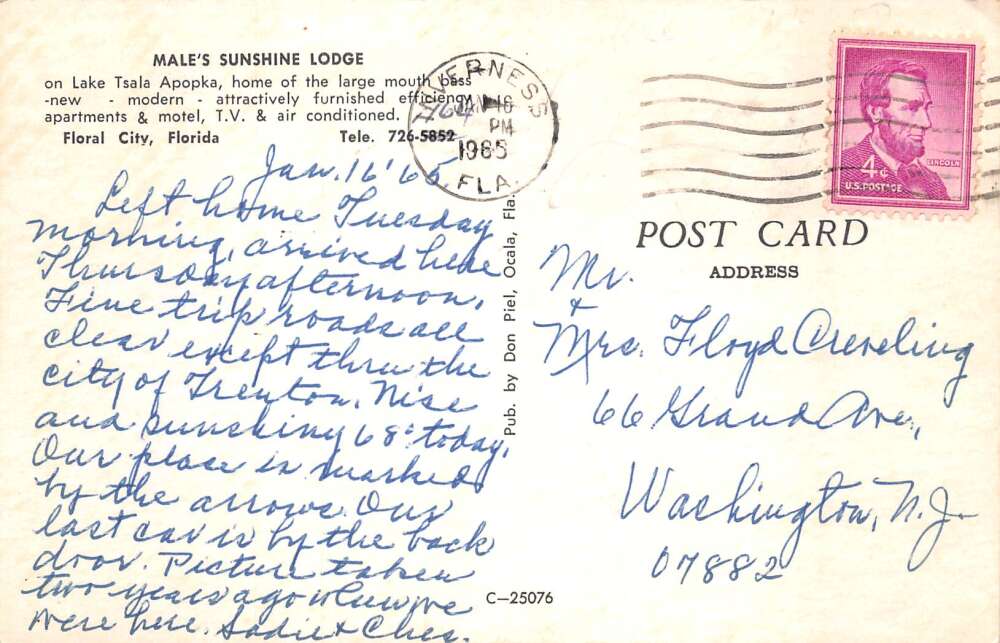 MALE'S SUNSHINE LODGE
on Lake Tsala Apopka, home of the large mouth bass
-new - modern - attractively furnished efficiency
apartments & motel, T.V. & air conditioned.
Floral City, Florida Tele. 726-5852
INVERNESS
JAN 16
PM
1965
FLA.
LINCOLN
4¢
U.S. POSTAGE
Jan. 16 '65
Left home Tuesday
morning, arrived here
Thursday afternoon.
Fine trip roads all
clear except thru the
city of Trenton. Nise
and sunshiny 68° today.
Our place is marked
by the arrows. Our
last car is by the back
door. Picture taken
two years ago when we
were here. Sadie & Ches.
Pub. by Don Piel, Ocala, Fla.
C-25076
POST CARD
ADDRESS
Mr.
&
Mrs. Floyd Creveling
66 Grand Ave.,
Washington, N.J.
07882